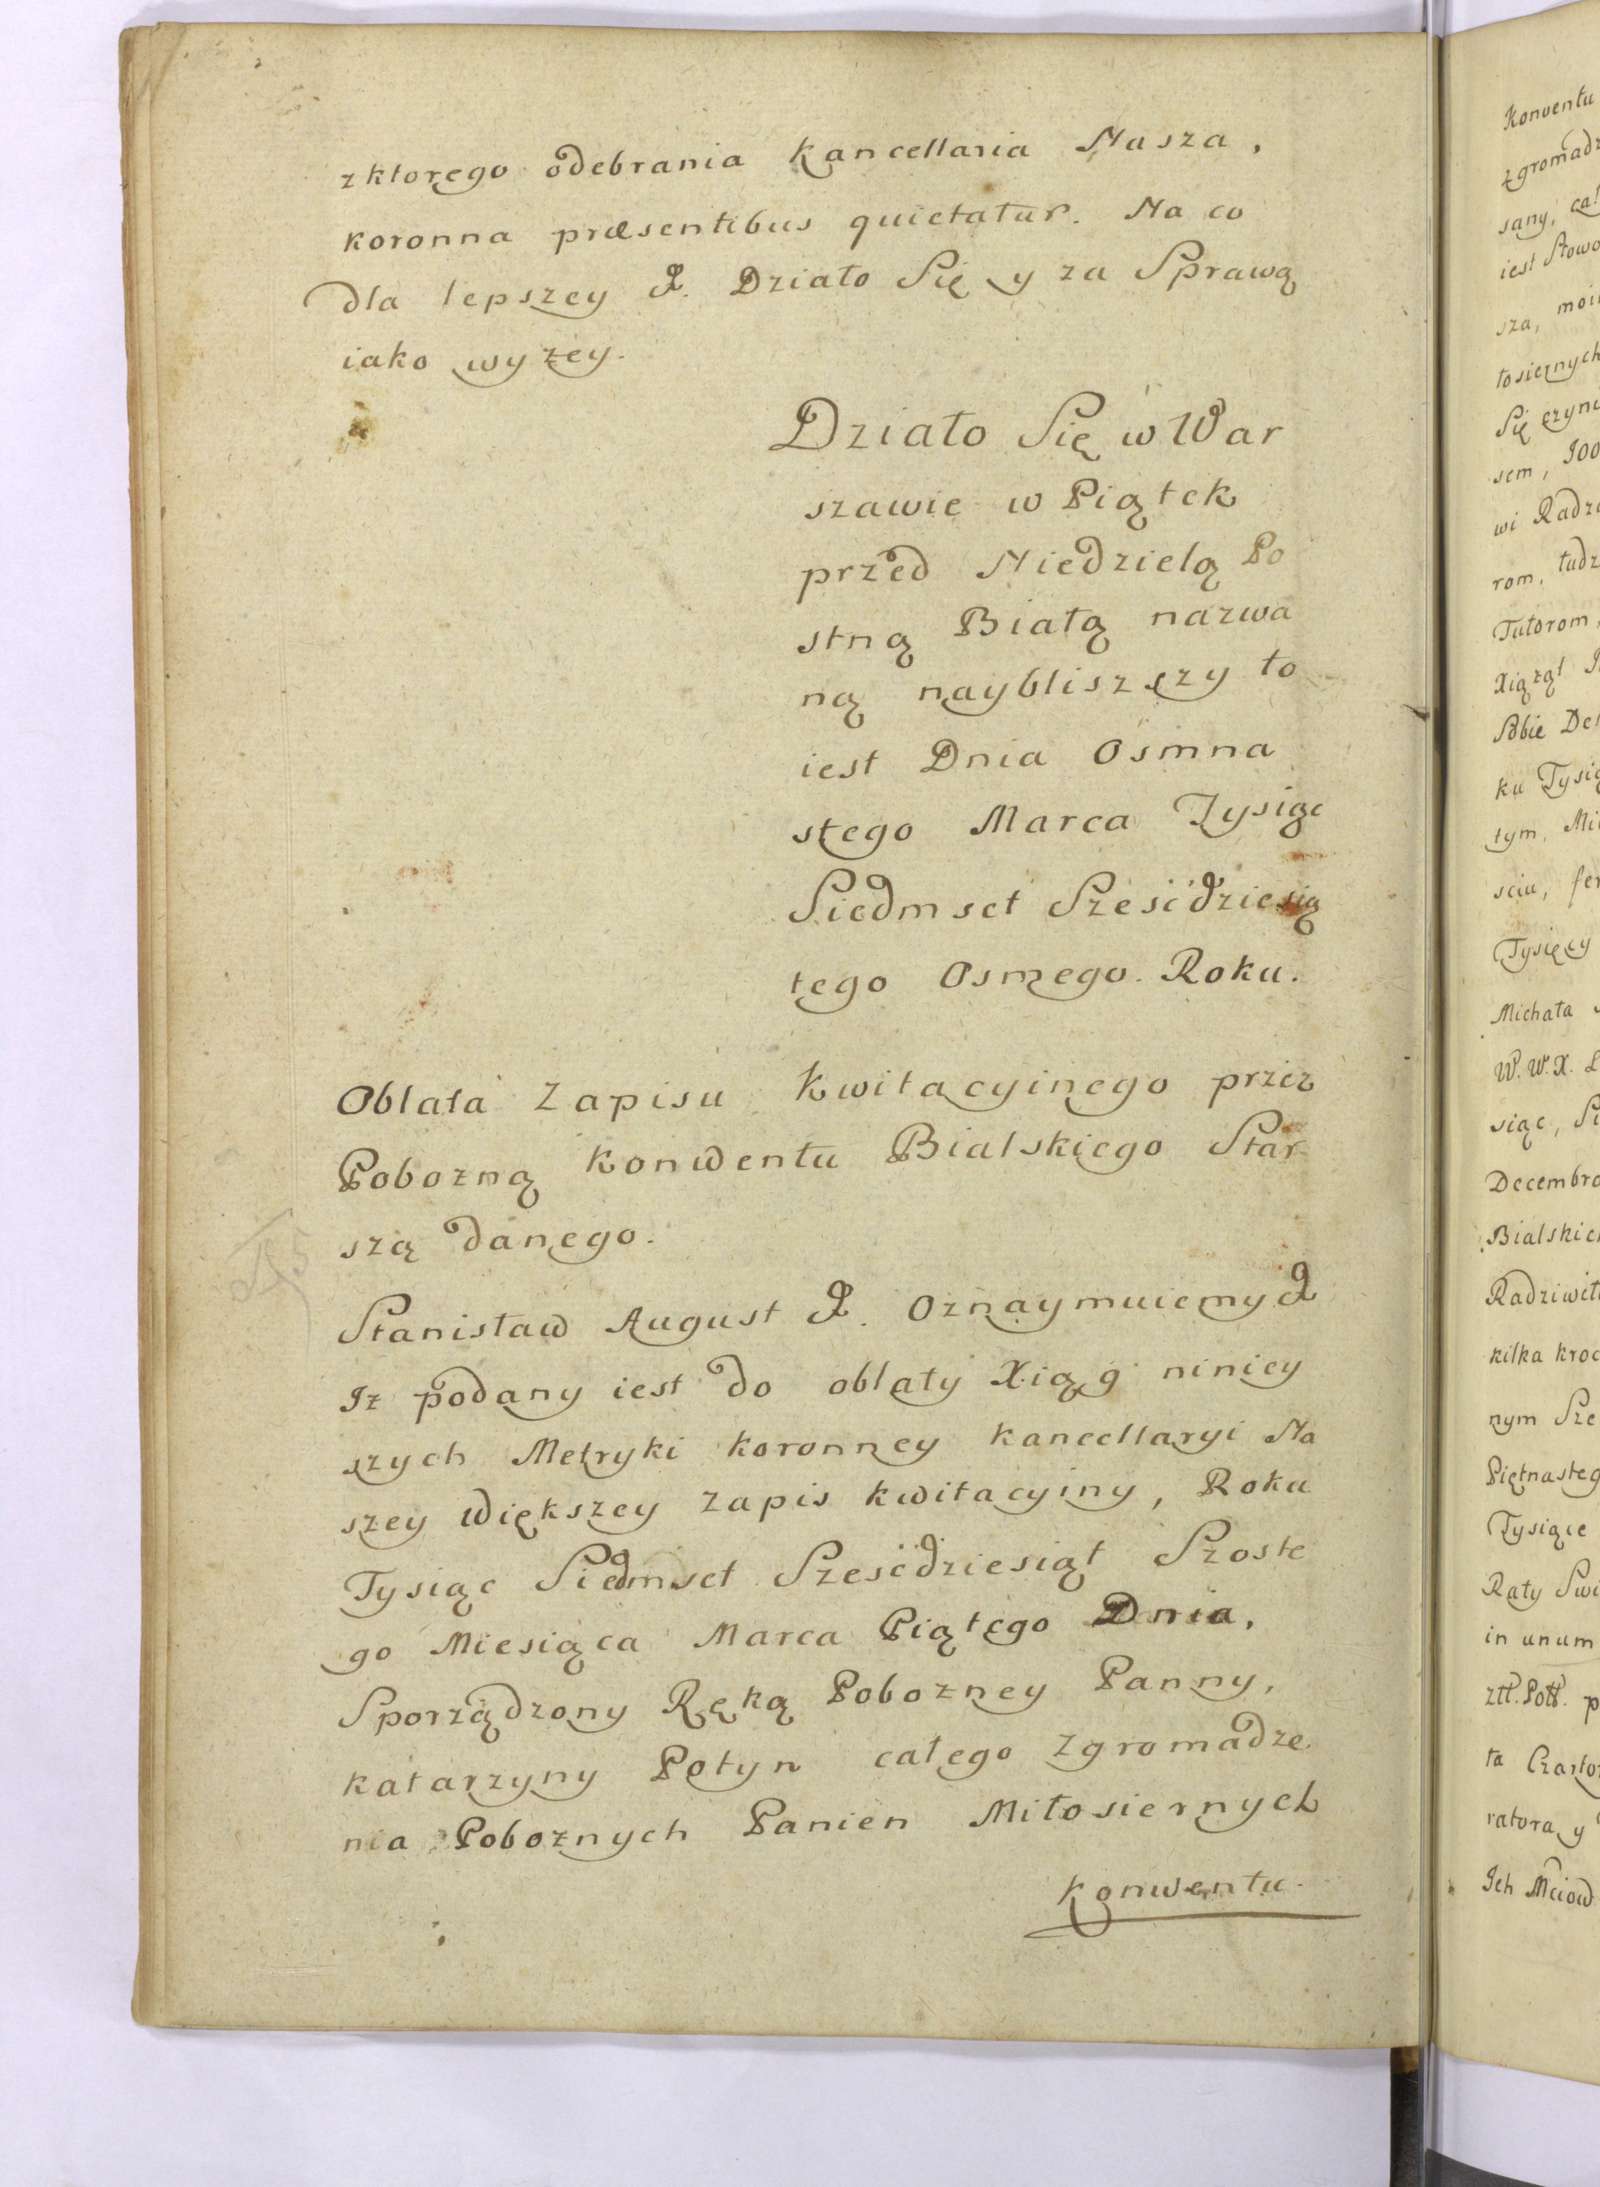 z ktorego odebrania Kancellaria Nasza,
koronna præsentibus quietatur. Na co
dla lepszey &. Działo Się y za Sprawą
iako wyzey.
Działo Się w War
szawie w Piątek
przed Niedzielą Po
stną Białą nazwa
ną naybliszszy to
iest Dnia Osmna
stego Marca Tysiąc
Siedmset Sześćdziesią
tego Osmego Roku.
Oblata Zapisu Kwitacyinego przez
Pobozną Konwentu Bialskiego Star
szą danego.
Stanisław August &. Oznaymuiemy &
Iz podany iest do oblaty Xiąg niniey
szych Metryki koronney kancellaryi Na
szey Większey zapis kwitacyiny, Roku
Tysiąc Siedmset Sześćdziesiąt Szoste
go Miesiąca Marca Piątego Dnia,
Sporządzony Ręką Pobozney Panny,
katarzyny Potyn całego zgromadze
nia Poboznych Panien Miłosiernych
Konwentu
Konwentu
zgromadz
sany, cał
iest Słowo
sza, moi
łosiernych
Się czyni
sem, JOO
wi Radzi
rom, tudz
Tutorom,
Xiąząt
Sobie De
ku Tysią
tym, Mi
sciu, fer
Tysięcy
Michała
W. W. X. L
siąc, Si
Decembra
Bialskie
Radziwił
kilka kroc
nym Sze
Piętnasteg
Tysiące
Raty Swi
in unum
ztł. Poll. p
ta Czartor
ratora y
Ich Mciow